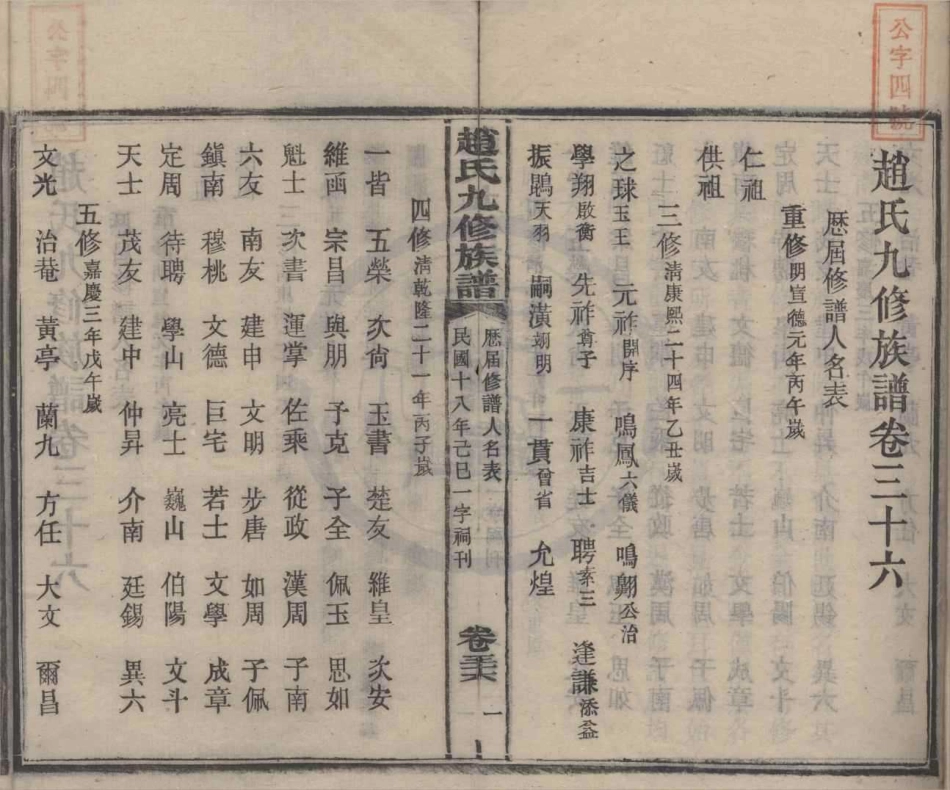 公字四號
趙氏九修族譜卷三十六
歷屆修譜人名表
重修明宣德元年丙午歲
仁祖
供祖
三修清康熙二十四年乙丑歲
之球玉王 元祚開序 鳴鳳六儀 鳴翺公治
學翔啟衡 先祚尊子 康祚吉士 聘素三 逢謙添益
振鵾天羽 嗣潢朝明 一貫曾省 允煌
趙氏九修族譜 歷屆修譜人名表 卷三十六 一
民國十八年己巳一字祠刊
四修清乾隆二十一年丙子歲
一皆 五榮 次尙 玉書 楚友 維皇 次安
維函 宗昌 與朋 子克 子全 佩玉 思如
魁士 次書 運掌 佐乘 從政 漢周 子南
六友 南友 建申 文明 步唐 如周 子佩
鎭南 穆桃 文德 巨宅 若士 文學 成章
定周 待聘 學山 亮士 巍山 伯陽 文斗
天士 茂友 建中 仲昇 介南 廷錫 異六
五修嘉慶三年戊午歲
文光 治菴 黃亭 蘭九 方任 大文 爾昌